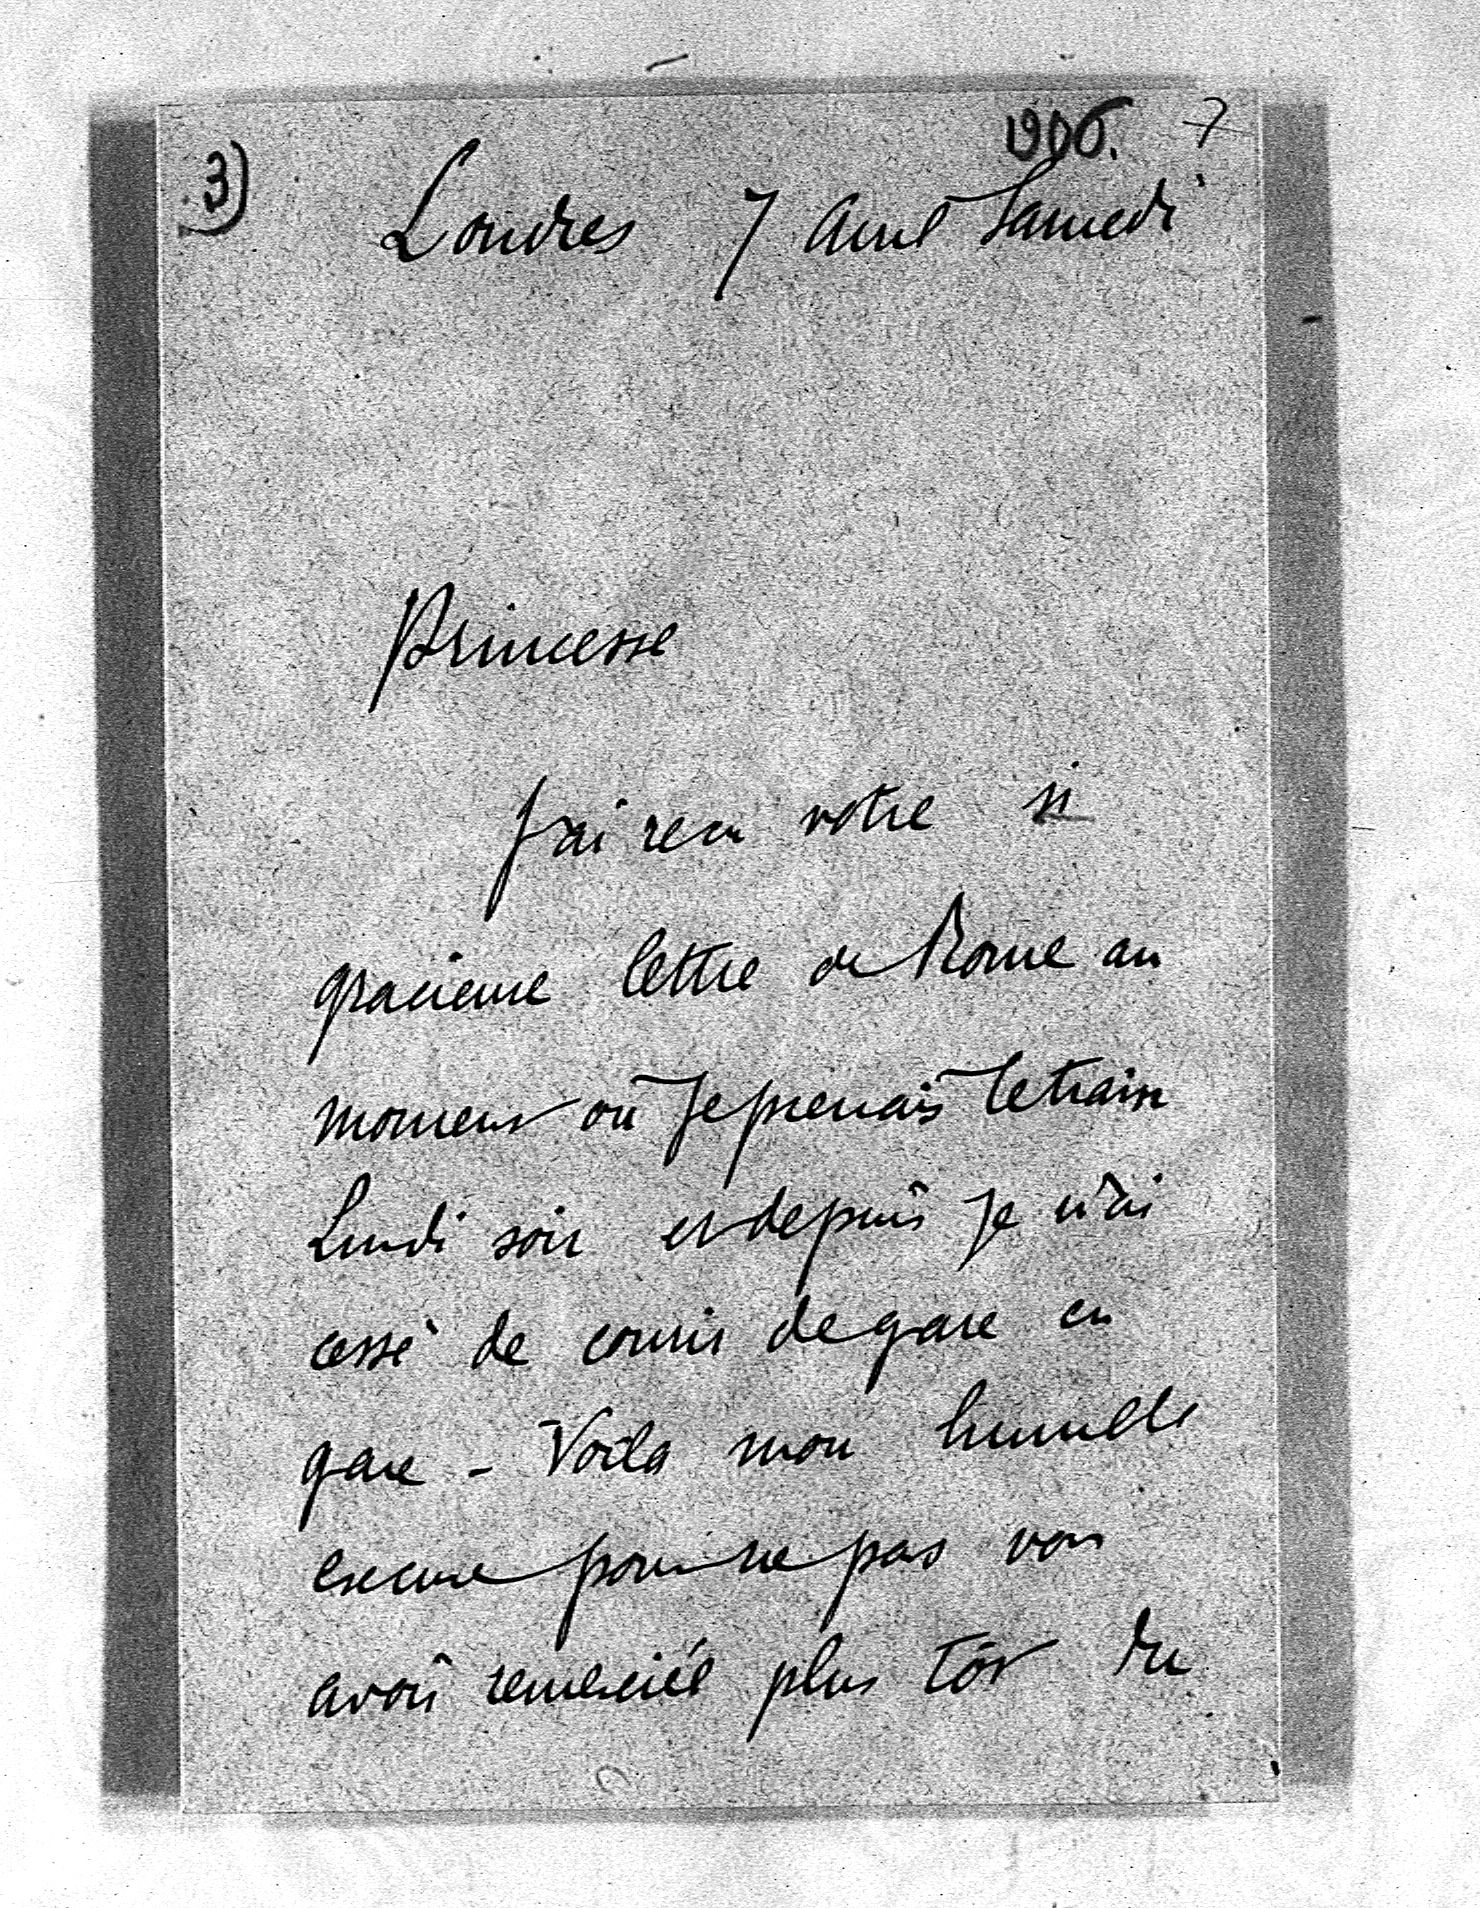 3)
1906. 7
Londres 7 avril Samedi
Princesse
J'ai recu votre si
gracieuse lettre de Rome au
moment où Je prenais le train
Lundi soir et depuis Je n'ai
cessé de courir de gare en
gare - Voila mon humble
excuse pour ne pas vous
avoir remercié plus tôt du